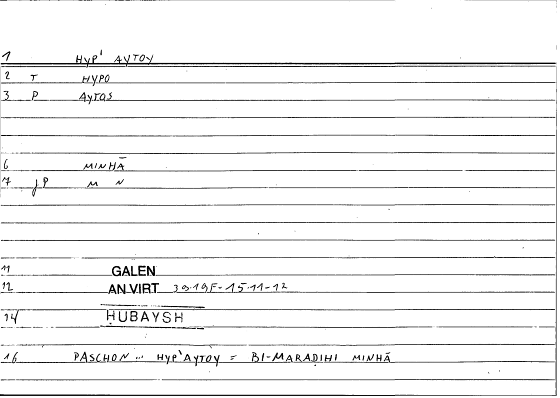 1 HYP' AYTOY
2 T HYPO
3 P AYTOS
6 MINHĀ
7 JP M N
11 GALEN
12 AN VIRT 3919F-1511-12
14 ḤUBAYSH
16 PASCHON ... HYP'AYTOY = BI-MARADIHI MINHĀ